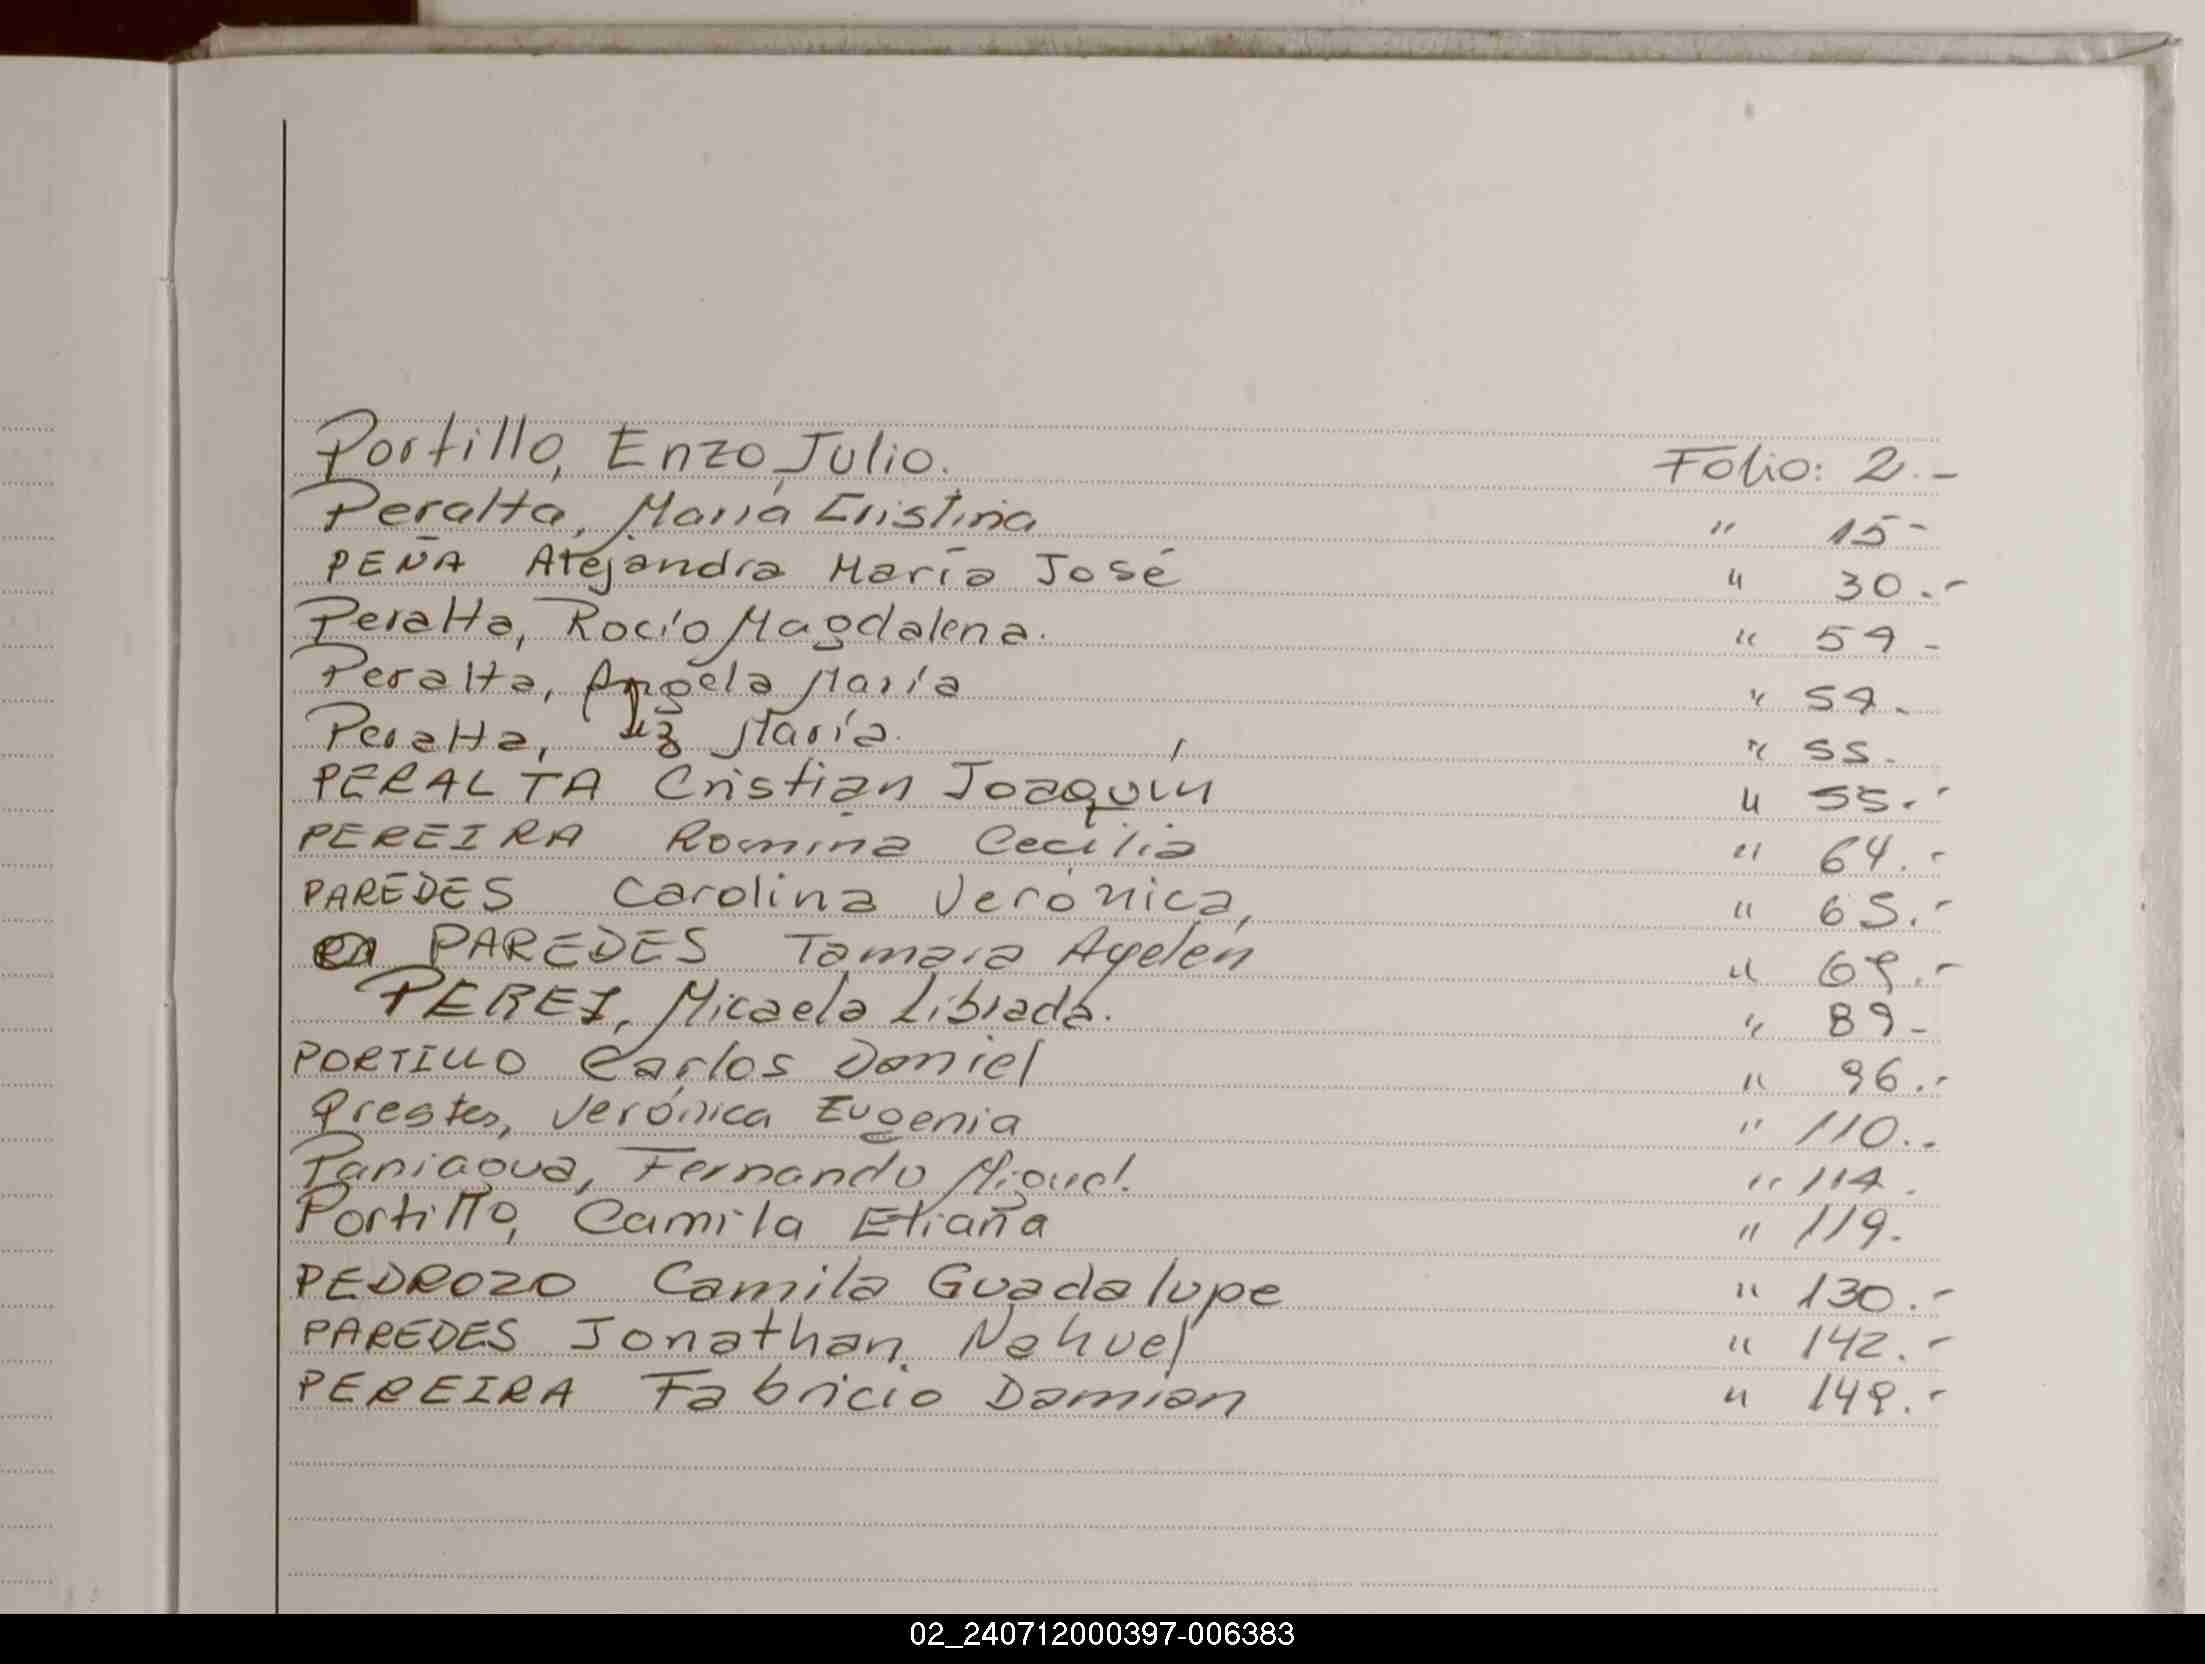 Portillo, Enzo Julio. Folio: 2.-
Peralta, María Cristina " 15-
PEÑA Alejandra María José " 30.-
Peralta, Rocío Magdalena. " 54-
Peralta, Angela María " 54.
Peralta, Luz María. " 55.
PERALTA Cristian Joaquín " 55.-
PEREIRA Romina Cecilia " 64.-
PAREDES Carolina Verónica, " 65.-
PAREDES Tamara Ayelén " 69.-
PEREZ, Micaela Librada. " 89-
PORTILLO Carlos Daniel " 96.-
Prestes, Verónica Eugenia " 110..
Paniagua, Fernando Miguel. " 114.
Portillo, Camila Eliana " 119.
PEDROZO Camila Guadalupe " 130.-
PAREDES Jonathan Nahuel " 142.-
PEREIRA Fabricio Damian " 149.-
02_240712000397-006383